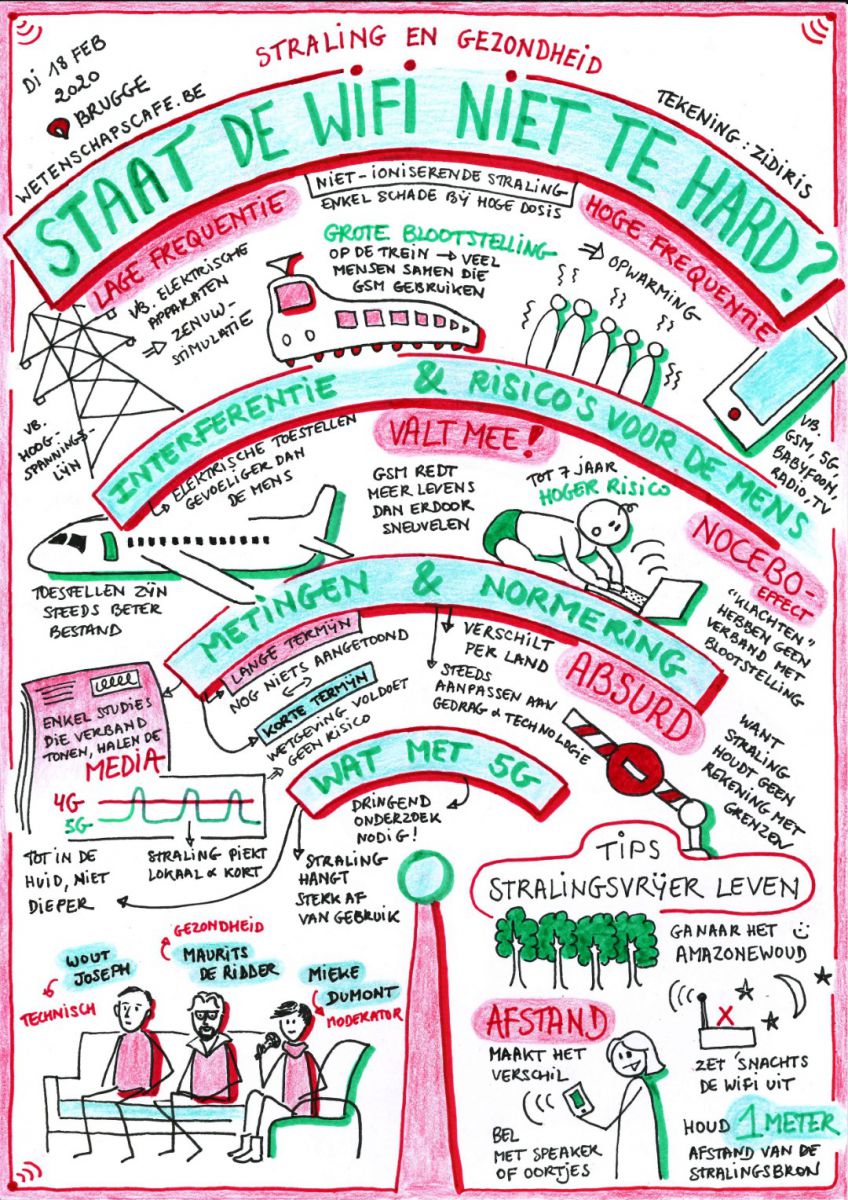 DI 18 FEB
2020
BRUGGE
WETENSCHAPSCAFE.BE
STRALING EN GEZONDHEID
TEKENING: ZIDIRIS
STAAT DE WIFI NIET TE HARD?
NIET-IONISERENDE STRALING
ENKEL SCHADE BIJ HOGE DOSIS
LAGE FREQUENTIE
VB. ELEKTRISCHE
APPARATEN
⇒ ZENUW-
STIMULATIE
VB.
HOOG-
SPANNINGS-
LIJN
GROTE BLOOTSTELLING
OP DE TREIN → VEEL
MENSEN SAMEN DIE
GSM GEBRUIKEN
HOGE FREQUENTIE
⇒ OPWARMING
VB.
GSM, 5G,
BABYFOON,
RADIO, TV
INTERFERENTIE & RISICO'S VOOR DE MENS
ELEKTRISCHE TOESTELLEN
GEVOELIGER DAN
DE MENS
TOESTELLEN ZIJN
STEEDS BETER
BESTAND
VALT MEE!
GSM REDT
MEER LEVENS
DAN ERDOOR
SNEUVELEN
TOT 7 JAAR
HOGER RISICO
NOCEBO-
EFFECT
"KLACHTEN"
HEBBEN GEEN
VERBAND MET
BLOOTSTELLING
METINGEN & NORMERING
ENKEL STUDIES
DIE VERBAND
TONEN, HALEN DE
MEDIA
LANGE TERMIJN
NOG NIETS AANGETOOND
KORTE TERMIJN
WETGEVING VOLDOET
⇒ GEEN RISICO
VERSCHILT
PER LAND
STEEDS
AANPASSEN AAN
GEDRAG & TECHNOLOGIE
ABSURD
WANT
STRALING
HOUDT GEEN
REKENING MET
GRENZEN
WAT MET 5G
4G
5G
TOT IN DE
HUID, NIET
DIEPER
STRALING PIEKT
LOKAAL & KORT
DRINGEND
ONDERZOEK
NODIG!
STRALING
HANGT
STERK AF
VAN GEBRUIK
TIPS
STRALINGSVRIJER LEVEN
GA NAAR HET
AMAZONEWOUD
AFSTAND
MAAKT HET
VERSCHIL
BEL
MET SPEAKER
OF OORTJES
ZET 'SNACHTS
DE WIFI UIT
HOUD 1 METER
AFSTAND VAN DE
STRALINGSBRON
WOUT
JOSEPH
TECHNISCH
GEZONDHEID
MAURITS
DE RIDDER
MIEKE
DUMONT
MODERATOR